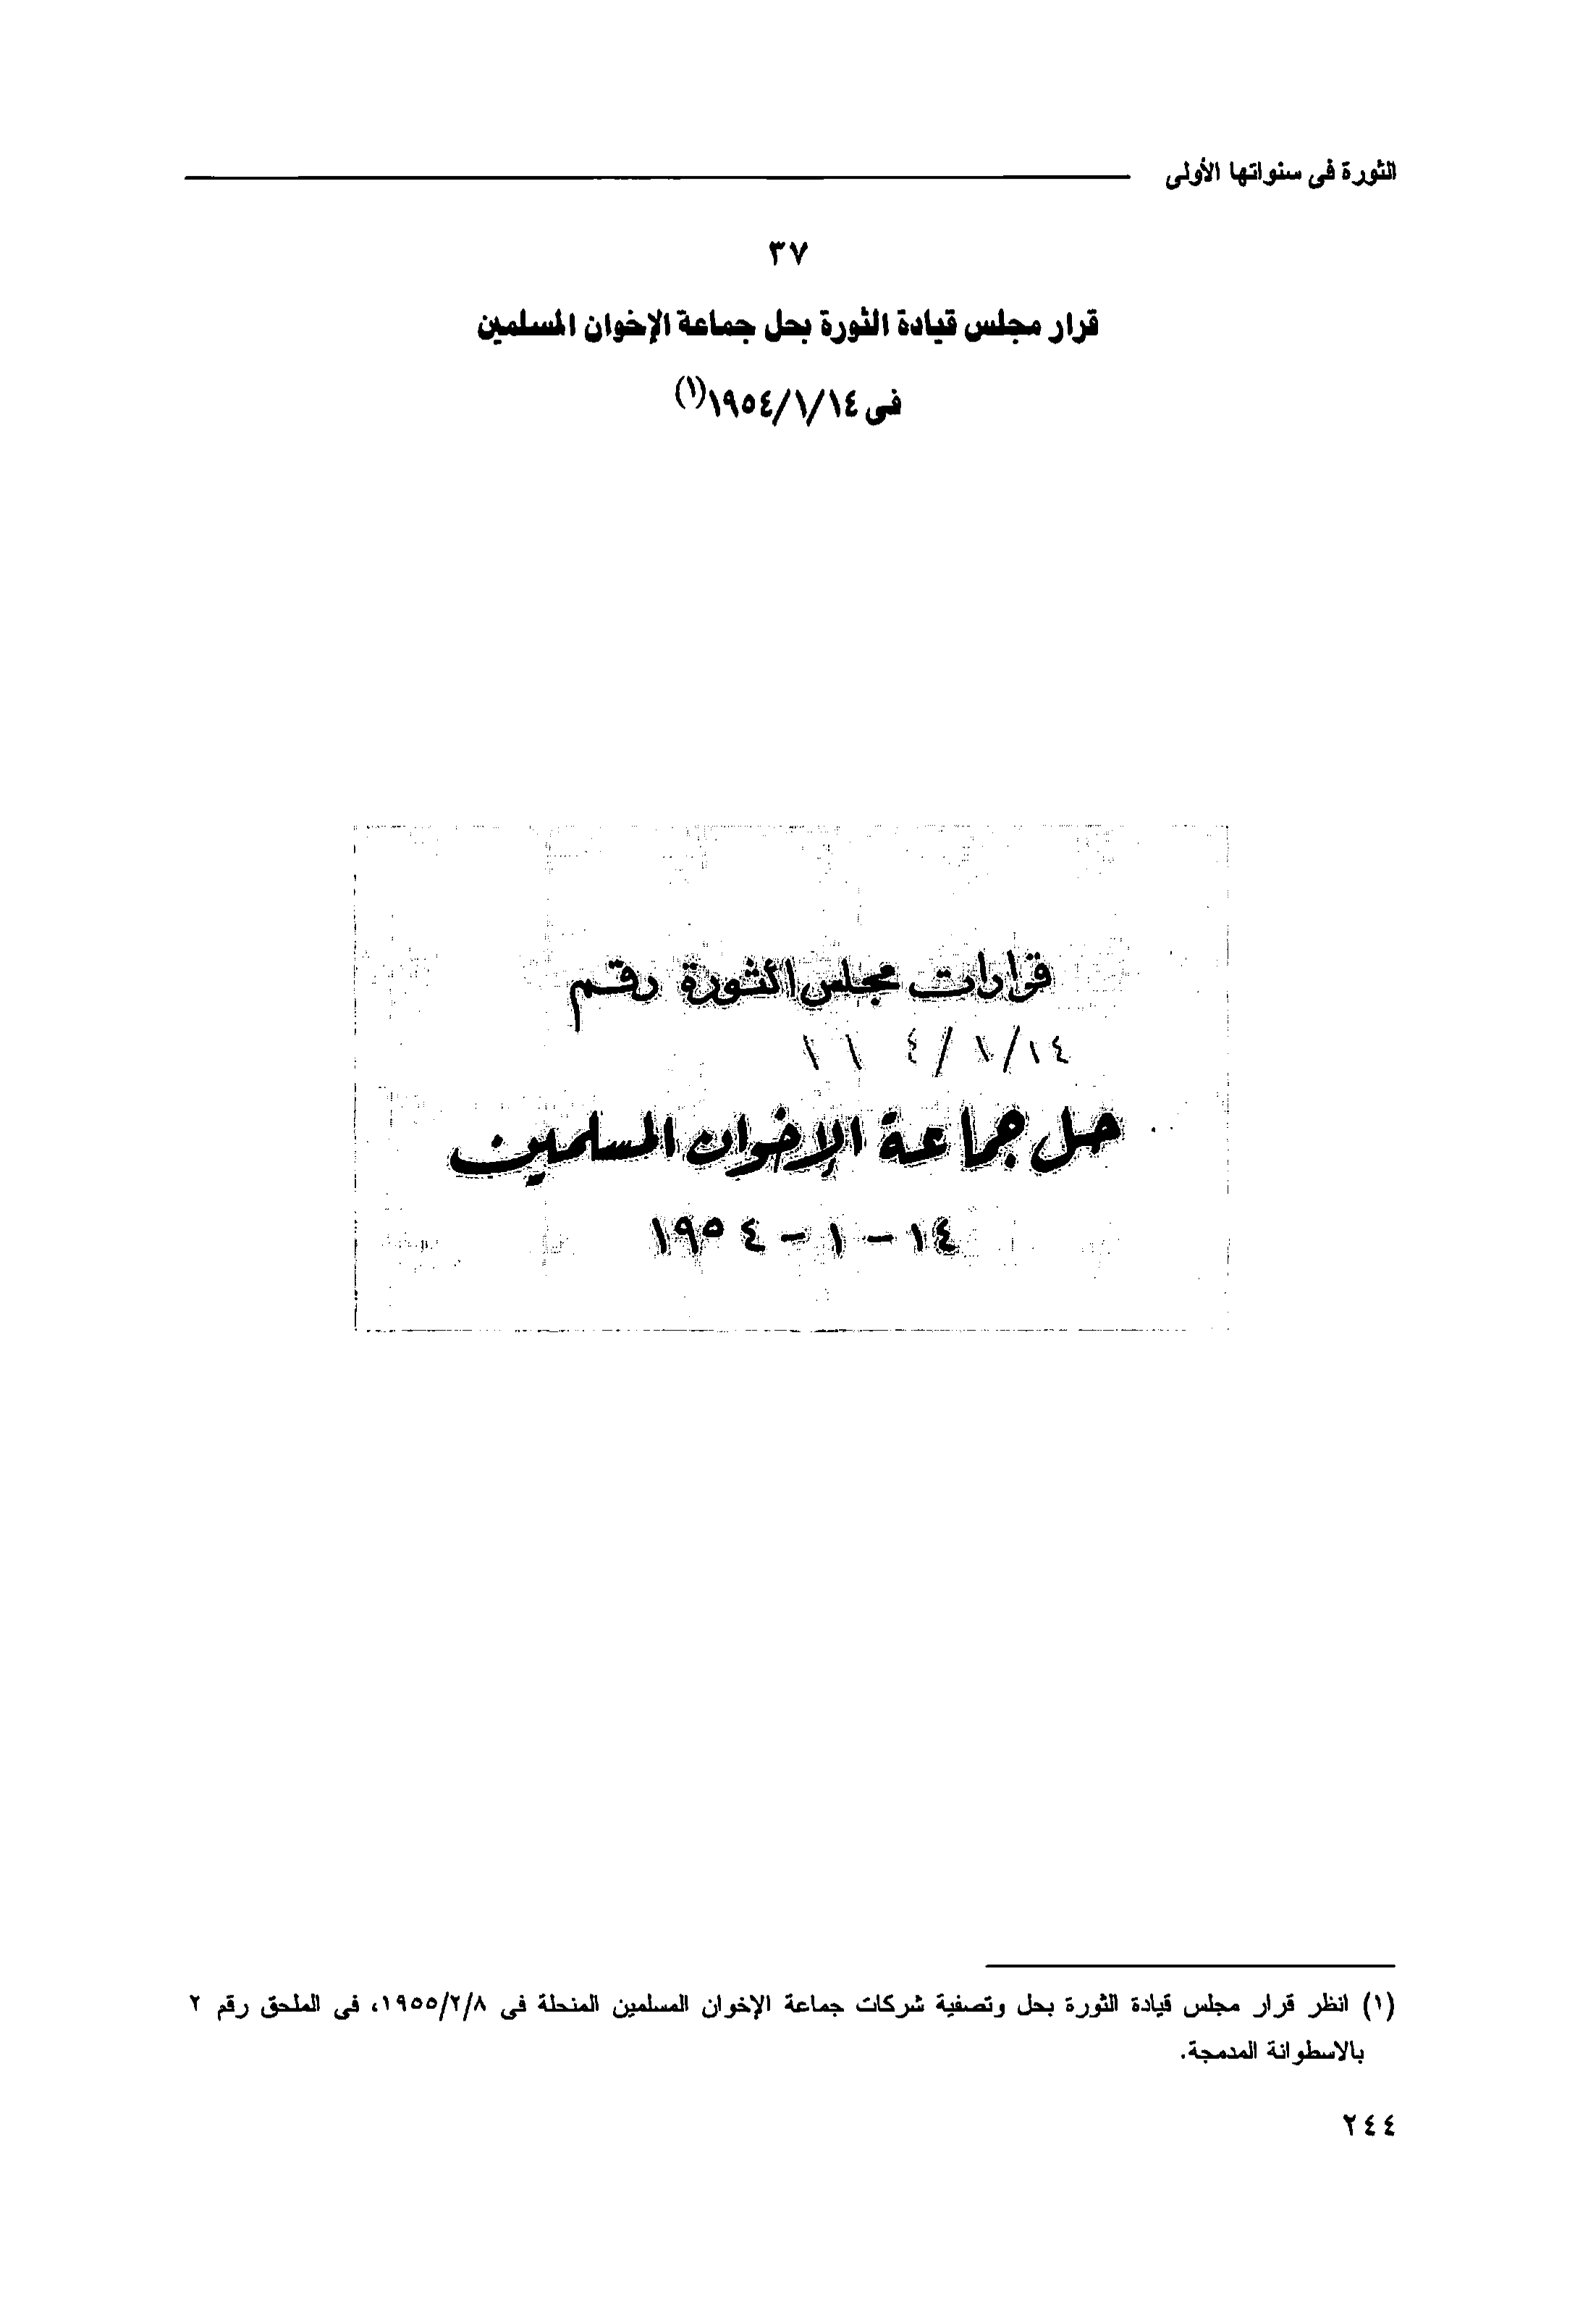 الثورة فى سنواتها الأولى
٣٧
قرار مجلس قيادة الثورة بحل جماعة الإخوان المسلمين
فى ١٩٥٤/١/١٤(١)
قرارات مجلس الثورة رقم
١٤/ ١/ ٤ ١١
حل جماعة الإخوان المسلمين
١٤ - ١ - ١٩٥٤
(١) انظر قرار مجلس قيادة الثورة بحل وتصفية شركات جماعة الإخوان المسلمين المنحلة فى ١٩٥٥/٢/٨، فى الملحق رقم ٢
بالاسطوانة المدمجة.
٢٤٤